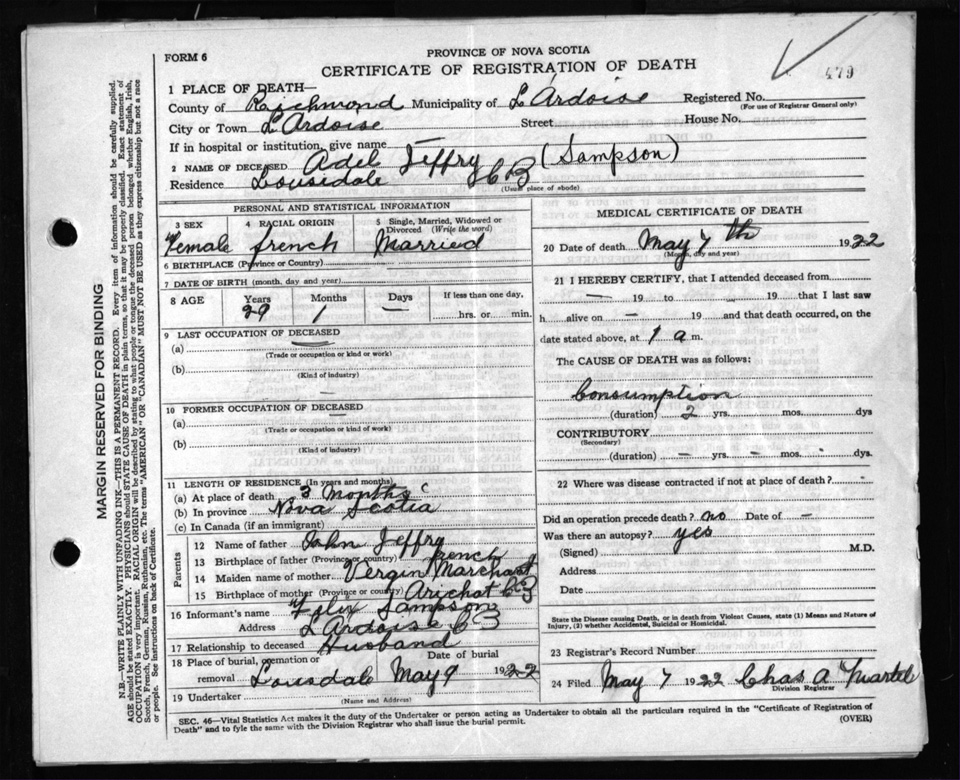 479
FORM 6
PROVINCE OF NOVA SCOTIA
CERTIFICATE OF REGISTRATION OF DEATH
1 PLACE OF DEATH—
County of Richmond Municipality of L'Ardoise Registered No.
(For use of Registrar General only)
City or Town L'Ardoise Street House No.
If in hospital or institution, give name
2 NAME OF DECEASED Adel Jeffry (Sampson)
Residence Lousidale CB
(Usual place of abode)
PERSONAL AND STATISTICAL INFORMATION
3 SEX 4 RACIAL ORIGIN 5 Single, Married, Widowed or Divorced (Write the word)
Female french Married
6 BIRTHPLACE (Province or Country)
7 DATE OF BIRTH (month, day and year)
8 AGE Years Months Days If less than one day,
29 1 — hrs. or min.
9 LAST OCCUPATION OF DECEASED
(a)
(Trade or occupation or kind or work)
(b)
(Kind of industry)
10 FORMER OCCUPATION OF DECEASED
(a)
(Trade or occupation or kind or work)
(b)
(Kind of industry)
11 LENGTH OF RESIDENCE (In years and months)
(a) At place of death 3 Months
(b) In province Nova Scotia
(c) In Canada (if an immigrant)
Parents
12 Name of father John Jeffry
13 Birthplace of father (Province or country) french
14 Maiden name of mother Vergin Marchant
15 Birthplace of mother (Province or country) Arichat CB
16 Informant's name Felix Sampson
Address L'Ardoise CB
17 Relationship to deceased Husband
18 Place of burial, cremation or removal Date of burial
Lousdale May 9 1922
19 Undertaker
(Name and Address)
MEDICAL CERTIFICATE OF DEATH
20 Date of death May 7th 1922
(Month, day and year)
21 I HEREBY CERTIFY, that I attended deceased from
— 19 to — 19 that I last saw
h alive on — 19 and that death occurred, on the
date stated above, at 1 a m.
The CAUSE OF DEATH was as follows:
Consumption
(duration) 2 yrs. mos. dys
CONTRIBUTORY
(Secondary)
(duration) — yrs. — mos. - dys.
22 Where was disease contracted if not at place of death? -
Did an operation precede death? no Date of —
Was there an autopsy? yes
(Signed) M.D.
Address
Date
State the Disease causing Death, or in death from Violent Causes, state (1) Means and Nature of
Injury, (2) whether Accidental, Suicidal or Homicidal.
23 Registrar's Record Number
24 Filed May 7 1922 Chas A
Division Registrar
SEC. 46—Vital Statistics Act makes it the duty of the Undertaker or person acting as Undertaker to obtain all the particulars required in the "Certificate of Registration of
Death" and to fyle the same with the Division Registrar who shall issue the burial permit.
(OVER)
MARGIN RESERVED FOR BINDING
N.B.—WRITE PLAINLY WITH UNFADING INK—THIS IS A PERMANENT RECORD. Every item of information should be carefully supplied.
AGE should be stated EXACTLY. PHYSICIANS should STATE CAUSE OF DEATH in plain terms, so that it may be properly classified. Exact statement of
OCCUPATION is very important. RACIAL ORIGIN will be described by stating to what people or tongue the deceased person belonged whether English, Irish,
Scotch, French, German, Russian, Ruthenian, etc. The terms "AMERICAN" OR "CANADIAN" MUST NOT BE USED as they express citizenship but not a race
or people. See instructions on back of Certificate.